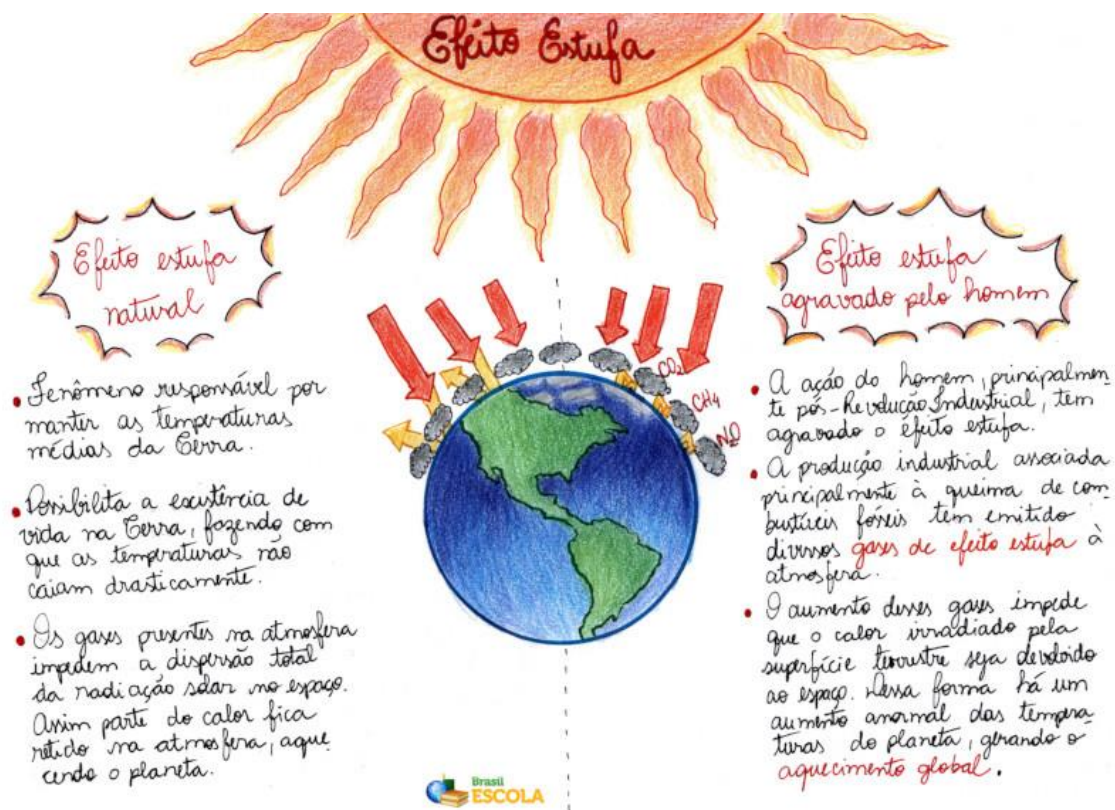 Efeito Estufa
Efeito estufa
natural
• Fenômeno responsável por
manter as temperaturas
médias da Terra.
• Possibilita a existência de
vida na Terra, fazendo com
que as temperaturas não
caiam drasticamente.
• Os gases presentes na atmosfera
impedem a dispersão total
da radiação solar no espaço.
Assim parte do calor fica
retido na atmosfera, aque
cendo o planeta.
CO₂
CH₄
N₂O
Efeito estufa
agravado pelo homem
• A ação do homem, principalmen-
te pós-Revolução Industrial, tem
agravado o efeito estufa.
• A produção industrial associada
principalmente à queima de com
bustíveis fósseis tem emitido
diversos gases de efeito estufa à
atmosfera.
• O aumento desses gases impede
que o calor irradiado pela
superfície terrestre seja devolvido
ao espaço. Dessa forma há um
aumento anormal das tempera
turas do planeta, gerando o
aquecimento global.
Brasil
ESCOLA